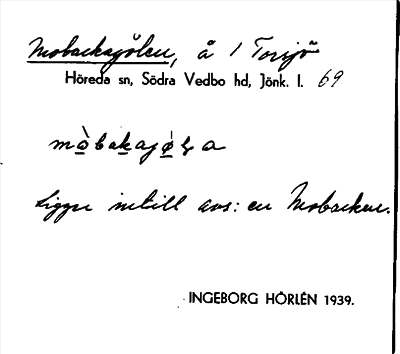 Mobackagölen, å / Torsjö
Höreda sn, Södra Vedbo hd, Jönk. l. 69
Ligger intill avs: en Mobacken.
INGEBORG HÖRLÉN 1939.